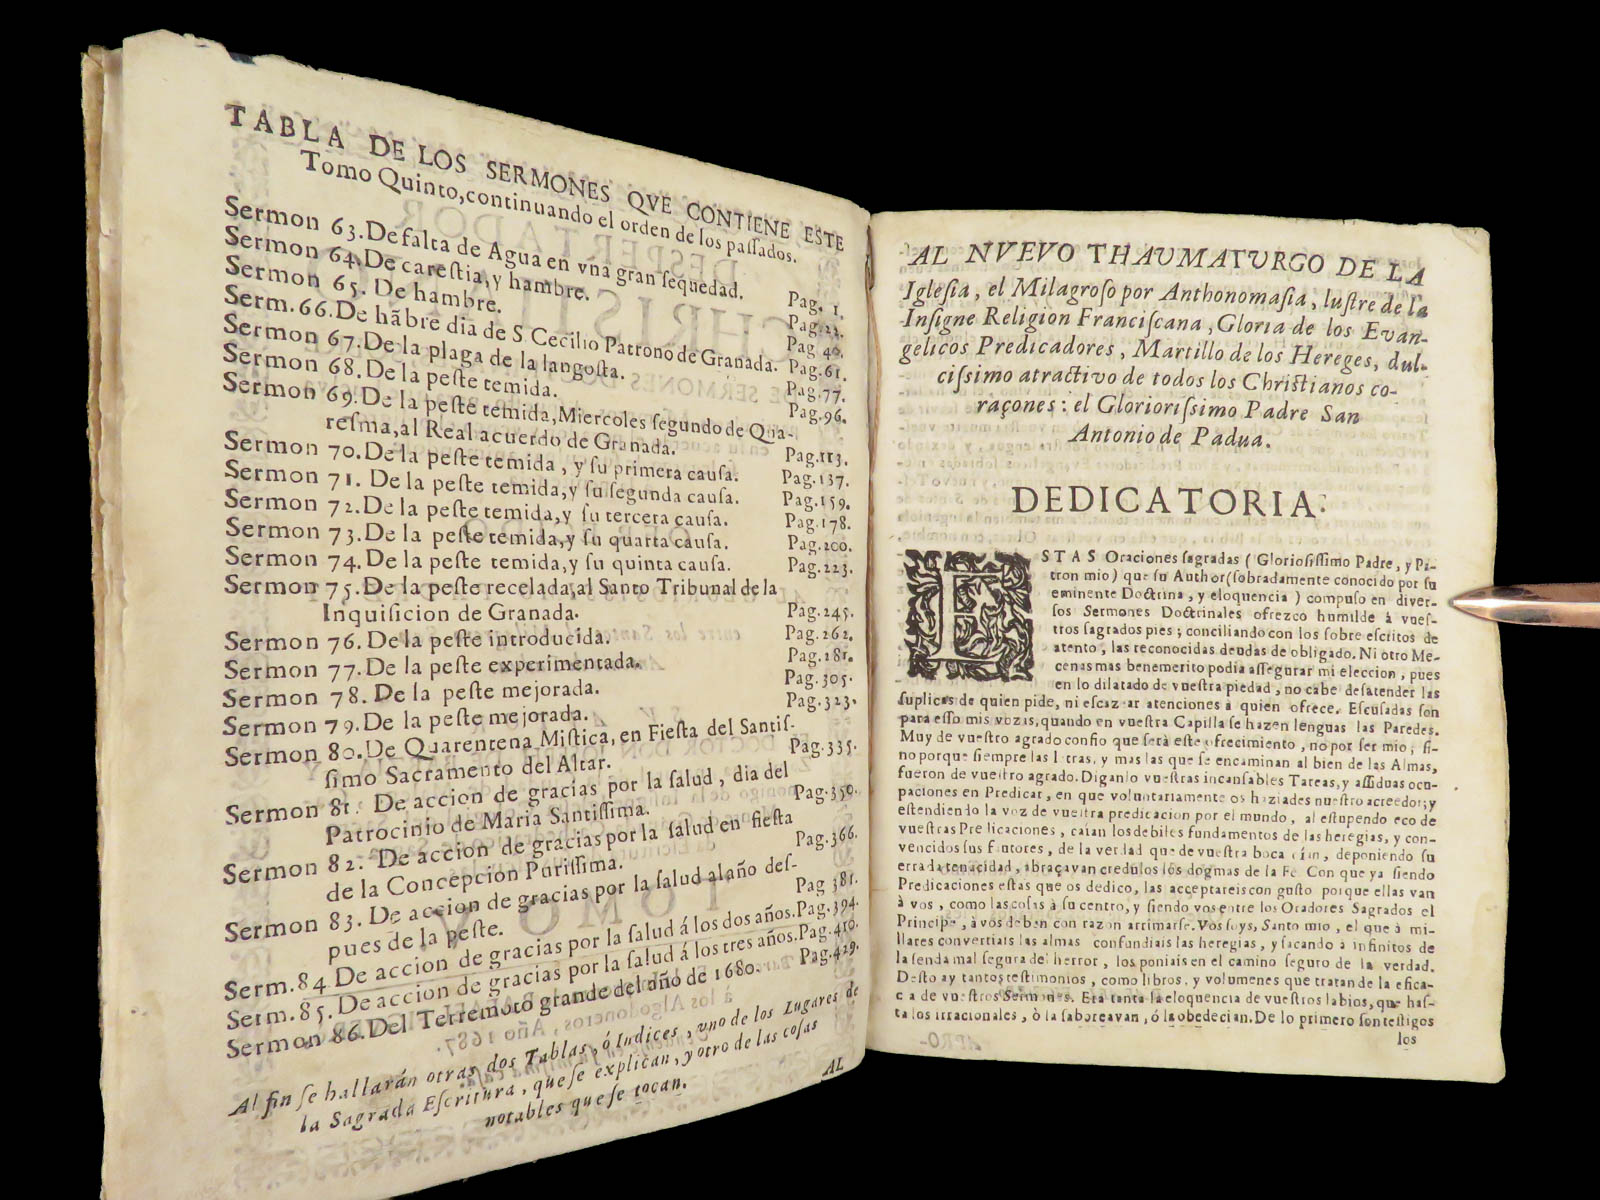 TABLA DE LOS SERMONES QVE CONTIENE ESTE
Tomo Quinto, continuando el orden de los paſſados.
Sermon 63. De falta de Agua en vna gran ſequedad. Pag. 1.
Sermon 64. De careſtia, y hambre. Pag. 22.
Sermon 65. De hambre. Pag 40.
Serm. 66. De hãbre dia de S Cecilio Patrono de Granada. Pag. 61.
Sermon 67. De la plaga de la langoſta. Pag. 77.
Sermon 68. De la peſte temida. Pag. 96.
Sermon 69. De la peſte temida, Miercoles ſegundo de Qua-
reſma, al Real acuerdo de Granada. Pag. 113.
Sermon 70. De la peſte temida, y ſu primera cauſa. Pag. 137.
Sermon 71. De la peſte temida, y ſu ſegunda cauſa. Pag. 159.
Sermon 72. De la peſte temida, y ſu tercera cauſa. Pag. 178.
Sermon 73. De la peſte temida, y ſu quarta cauſa. Pag. 200.
Sermon 74. De la peſte temida, y ſu quinta cauſa. Pag. 223.
Sermon 75. De la peſte recelada, al Santo Tribunal de la
Inquiſicion de Granada. Pag. 245.
Sermon 76. De la peſte introducida. Pag. 262.
Sermon 77. De la peſte experimentada. Pag. 281.
Sermon 78. De la peſte mejorada. Pag. 305.
Sermon 79. De la peſte mejorada. Pag. 323.
Sermon 80. De Quarentena Miſtica, en Fieſta del Santiſ-
ſimo Sacramento del Altar. Pag. 335.
Sermon 81. De accion de gracias por la ſalud, dia del
Patrocinio de Maria Santiſſima. Pag. 350.
Sermon 82. De accion de gracias por la ſalud en fieſta
de la Concepcion Puriſſima. Pag. 366.
Sermon 83. De accion de gracias por la ſalud al año deſ-
pues de la peſte. Pag 381.
Serm. 84 De accion de gracias por la ſalud á los dos años. Pag. 394.
Serm. 85. De accion de gracias por la ſalud á los tres años. Pag. 410.
Sermon 86. Del Terremoto grande del año de 1680. Pag. 429.
Al fin ſe hallarán otras dos Tablas, ó Indices, vno de los Lugares de
la Sagrada Eſcritura, que ſe explican, y otro de las coſas
notables que ſe tocan.
AL
AL NVEVO THAUMATURGO DE LA
Igleſia, el Milagroſo por Anthonomaſia, luſtre de la
Inſigne Religion Franciſcana, Gloria de los Evan-
gelicos Predicadores, Martillo de los Hereges, dul-
ciſsimo atractivo de todos los Chriſtianos co-
raçones: el Glorioriſsimo Padre San
Antonio de Padua.
DEDICATORIA.
ESTAS Oraciones ſagradas (Glorioſiſſimo Padre, y Pa-
tron mio) que ſu Author (ſobradamente conocido por ſu
eminente Doctrina, y eloquencia) compuſo en diver-
ſos Sermones Doctrinales ofrezco humilde à vueſ-
tros ſagrados pies; conciliando con los ſobre eſcritos de
atento, las reconocidas deudas de obligado. Ni otro Me-
cenas mas benemerito podia aſſegurar mi eleccion, pues
en lo dilatado de vueſtra piedad, no cabe deſatender las
ſuplicas de quien pide, ni eſcazear atenciones à quien ofrece. Eſcuſadas ſon
para eſſo mis vozes, quando en vueſtra Capilla ſe hazen lenguas las Paredes.
Muy de vueſtro agrado confio que ſerà eſte ofrecimiento, no por ſer mio, ſi-
no porque ſiempre las letras, y mas las que ſe encaminan al bien de las Almas,
fueron de vueſtro agrado. Diganlo vueſtras incanſables Tareas, y aſſiduas ocu-
paciones en Predicar, en que voluntariamente os haziades nueſtro acreedor; y
eſtendiendo la voz de vueſtra predicacion por el mundo, al eſtupendo eco de
vueſtras Predicaciones, caian los debiles fundamentos de las heregias, y con-
vencidos ſus fautores, de la verdad que de vueſtra boca oian, deponiendo ſu
errada tenacidad, abraçavan credulos los dogmas de la Fè Con que ya ſiendo
Predicaciones eſtas que os dedico, las acceptareis con guſto porque ellas van
à vos, como las coſas à ſu centro, y ſiendo vos entre los Oradores Sagrados el
Principe, à vos deben con razon arrimarſe. Vos ſoys, Santo mio, el que à mi-
llares convertiais las almas confundiais las heregias, y ſacando à infinitos de
la ſenda mal ſegura del herror, los poniais en el camino ſeguro de la verdad.
Deſto ay tantos teſtimonios, como libros, y volumenes que tratan de la efica-
cia de vueſtros Sermones. Era tanta la eloquencia de vueſtros labios, que haſ-
ta los irracionales, ò la ſaboreavan, ó la obedecian. De lo primero ſon teſtigos
los